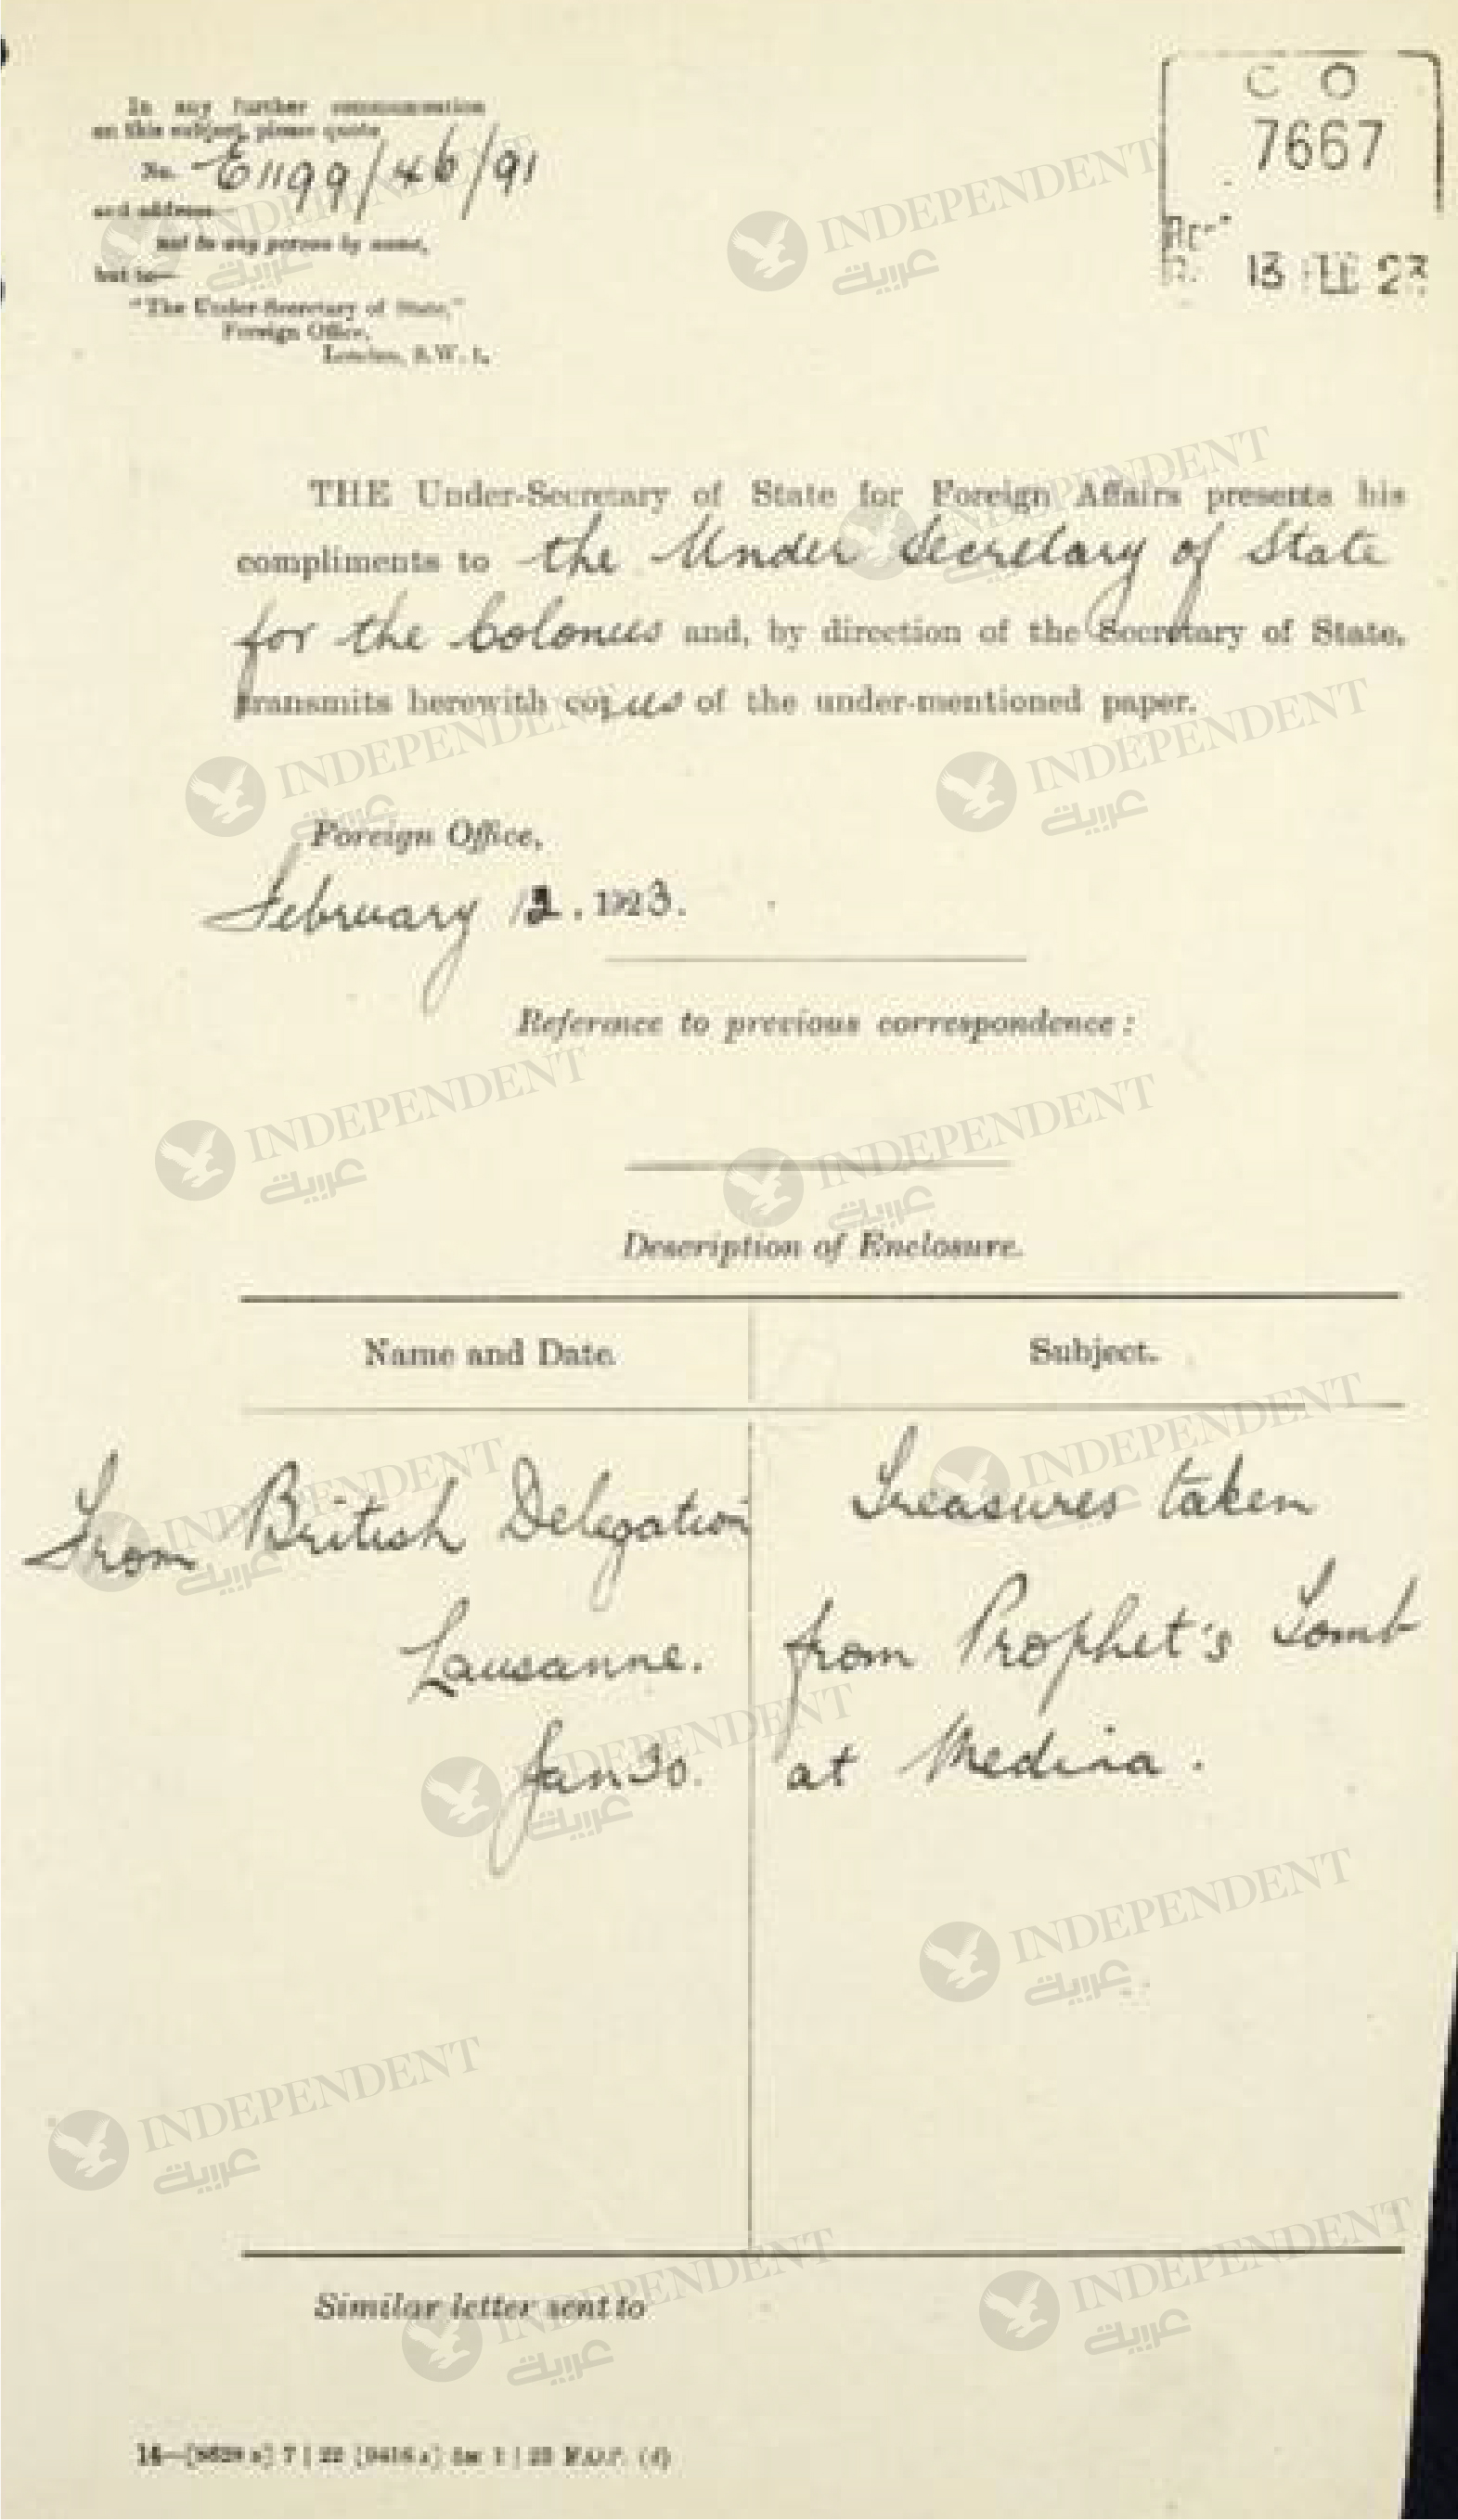 In any further communication
on this subject, please quote
No. E1199/46/91
and address—
not to any person by name,
but to—
"The Under-Secretary of State,"
Foreign Office,
London, S.W. 1.
C O
7667
13 FEB 23
THE Under-Secretary of State for Foreign Affairs presents his
compliments to the Under Secretary of State
for the Colonies and, by direction of the Secretary of State,
transmits herewith copies of the under-mentioned paper.
Foreign Office,
February 12. 1923.
Reference to previous correspondence:
Description of Enclosure.
Name and Date.
Subject.
From British Delegation
Lausanne.
Jan 30.
Treasures taken
from Prophet's Tomb
at Medina.
Similar letter sent to
INDEPENDENT
عربية